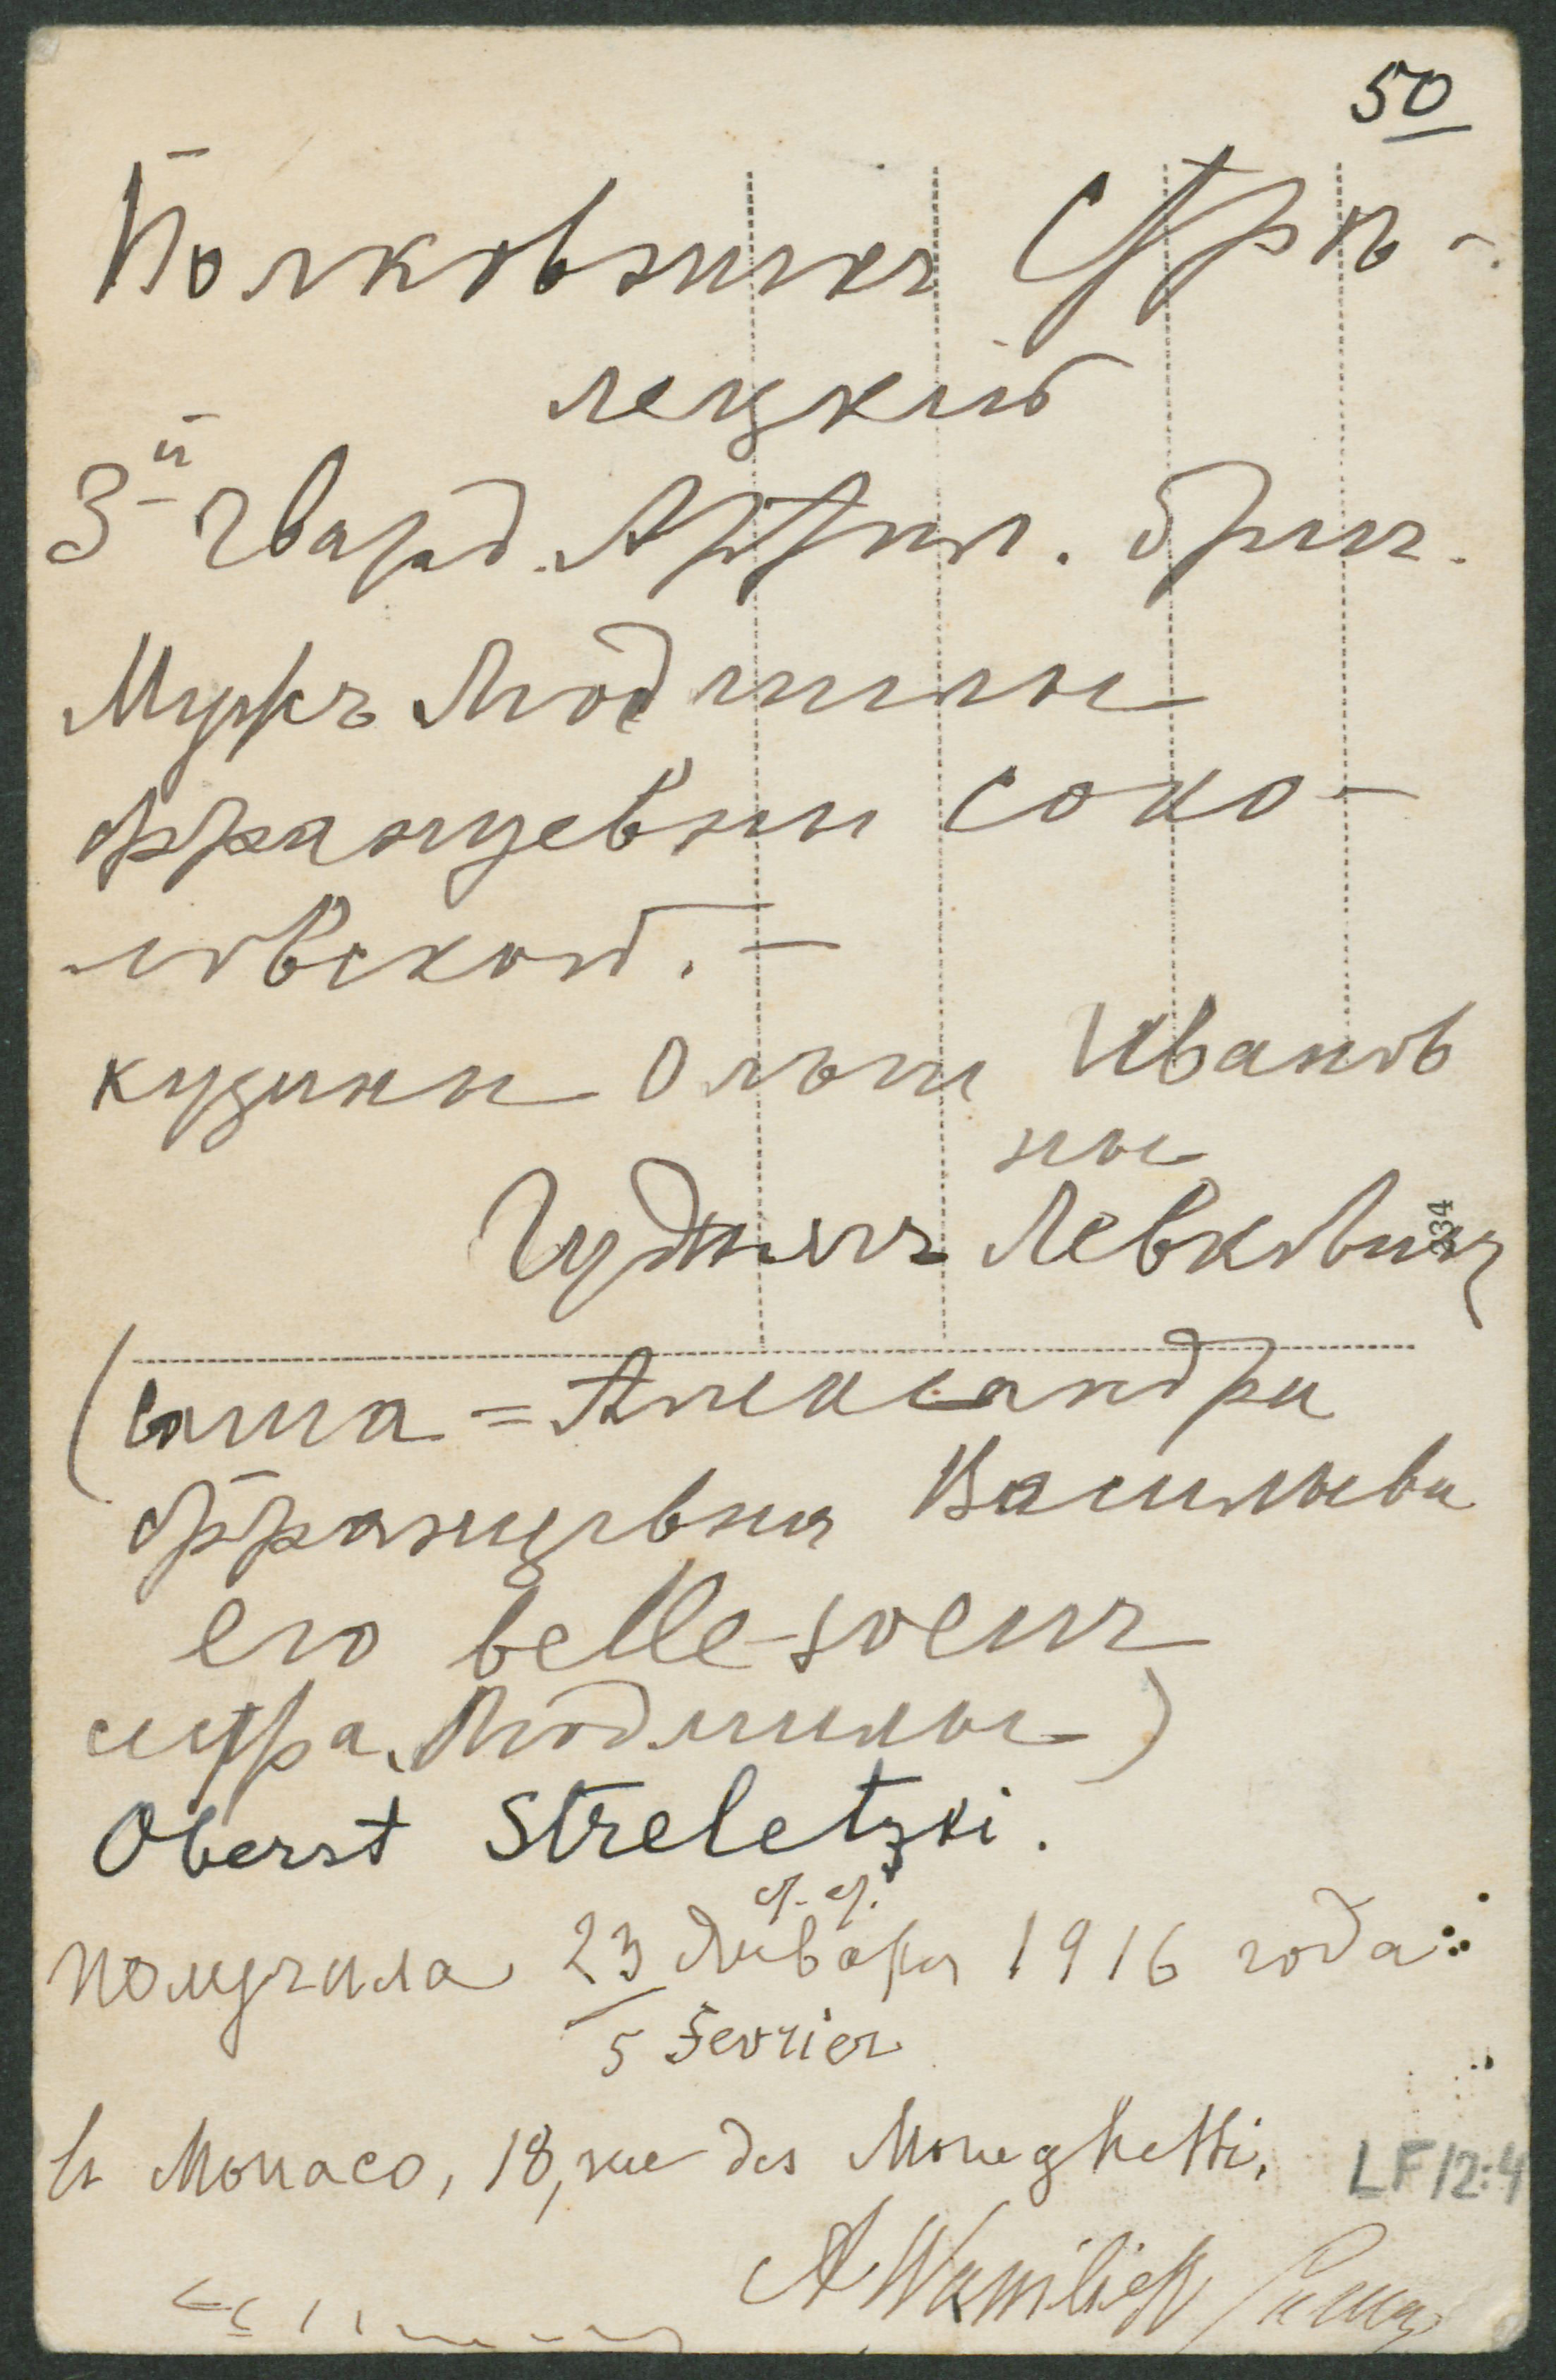 50
Полковника Стрѣ-
лецкій
3й Гвард. Артил. бриг.
Мужъ Людмилы
Францевны Соко-
ловской. —
кузины Ольги Иванов
ны
Гудимъ Левковичъ
234
(Саша = Александра
Францевна Васильева
его belle-soeur
сестра Людмилы)
Oberst Streletzki.
ст. ст.
получила 23 Января 1916 года
5 Fevrier
в Monaco, 18, rue des Moneghetti.
LF 12:4
A Wassilieff